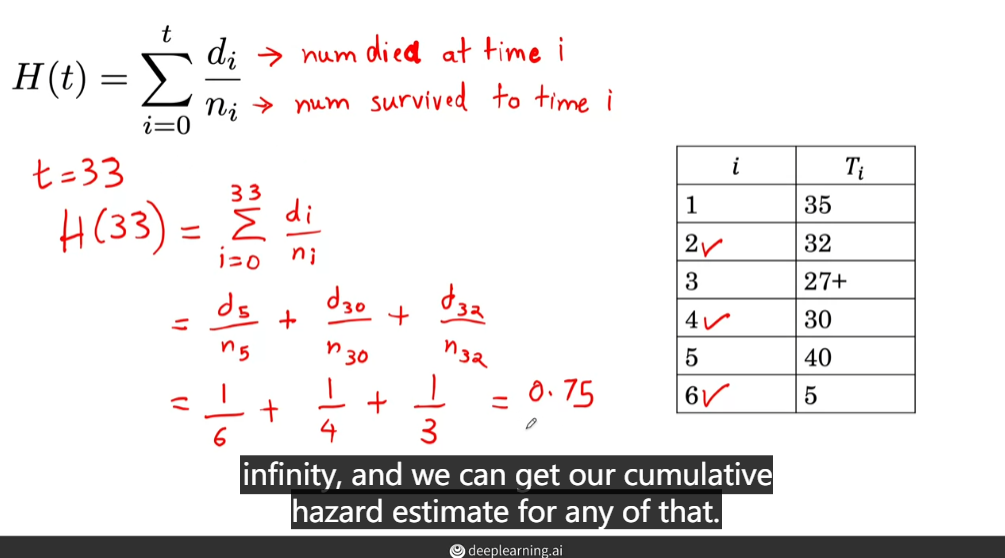 H(t) = \sum_{i=0}^{t} \frac{d_i}{n_i}
→ num died at time i
→ num survived to time i
t=33
H(33) = \sum_{i=0}^{33} \frac{d_i}{n_i}
= \frac{d_5}{n_5} + \frac{d_{30}}{n_{30}} + \frac{d_{32}}{n_{32}}
= \frac{1}{6} + \frac{1}{4} + \frac{1}{3} = 0.75
i T_i
1 35
2✓ 32
3 27+
4✓ 30
5 40
6✓ 5
infinity, and we can get our cumulative
hazard estimate for any of that.
deeplearning.ai